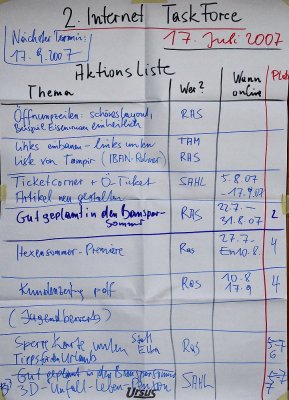 2. Internet TaskForce
Nächster Termin:
17.9.2007
17. Juli 2007
AktionsListe
Thema Wer? Wann online
Öffnungszeiten: schönes Layout, RAS
Beispiel Eisenwaren einheitlich
Links einbauen - links unten TAM
Liste von Tampir (IBAN-Rechner) RAS
Ticketcorner + Ö-Ticket SAHL 5.8.07
Artikel neu gestalten - 17.9.07
Gut geplant in den Bauspar- RAS 22.7.-
sommer 31.8.07 2
Hexensommer-Premiere Ras 27.7.- 4
En10.8.
Kundenzeitg pdf Ras 10.8 4
17.9
(Jugendbewerb)
Sperrkarte unten Statt Ras 5-7
Elba 6
Tipps für den Urlaub
Gut geplant in den Bausparsommer
3D-Unfall-Leben-Pension SAHL 5-7
7
Ursus